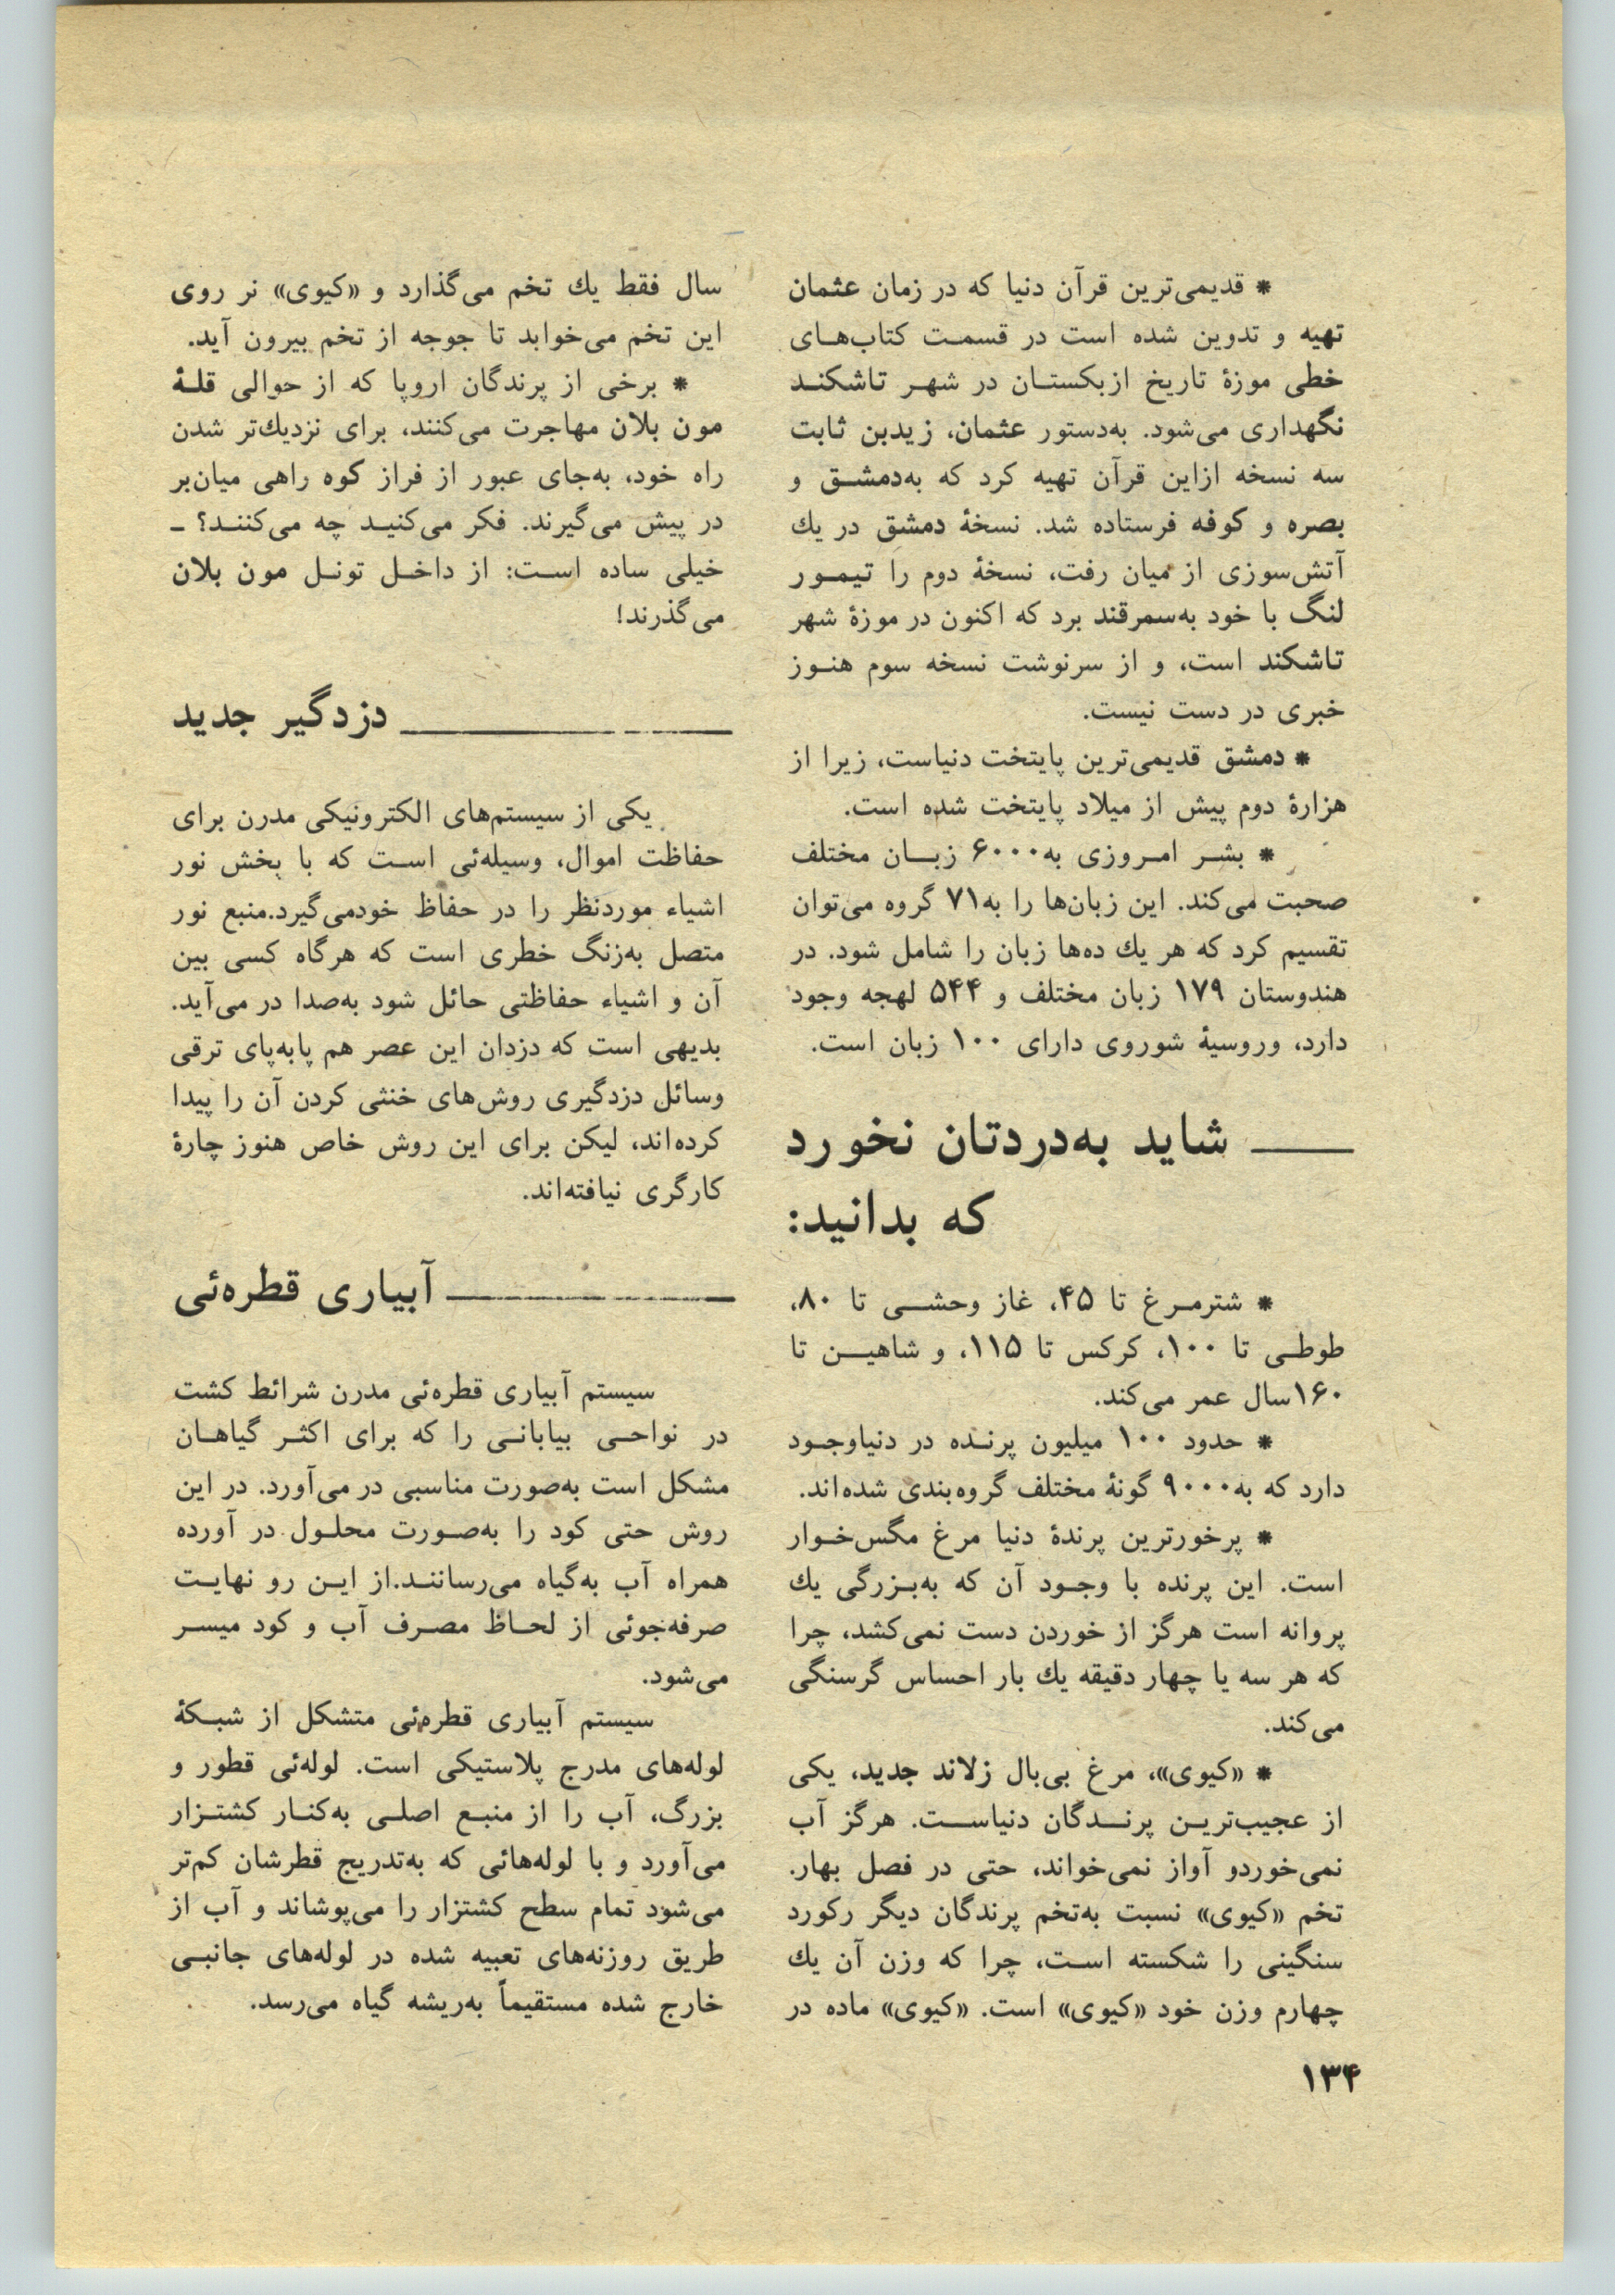 * قدیمی‌ترین قرآن دنیا که در زمان عثمان
تهیه و تدوین شده است در قسمت کتاب‌های
خطی موزهٔ تاریخ ازبکستان در شهر تاشکند
نگهداری می‌شود. به‌دستور عثمان، زیدبن ثابت
سه نسخه ازاین قرآن تهیه کرد که به‌دمشق و
بصره و کوفه فرستاده شد. نسخهٔ دمشق در یك
آتش‌سوزی از میان رفت، نسخهٔ دوم را تیمور
لنگ با خود به‌سمرقند برد که اکنون در موزهٔ شهر
تاشکند است، و از سرنوشت نسخه سوم هنوز
خبری در دست نیست.
* دمشق قدیمی‌ترین پایتخت دنیاست، زیرا از
هزارهٔ دوم پیش از میلاد پایتخت شده است.
* بشر امروزی به۶۰۰۰ زبان مختلف
صحبت می‌کند. این زبان‌ها را به۷۱ گروه می‌توان
تقسیم کرد که هر یك ده‌ها زبان را شامل شود. در
هندوستان ۱۷۹ زبان مختلف و ۵۴۴ لهجه وجود
دارد، وروسیهٔ شوروی دارای ۱۰۰ زبان است.
شاید به‌دردتان نخورد
که بدانید:
* شترمرغ تا ۴۵، غاز وحشی تا ۸۰،
طوطی تا ۱۰۰، کرکس تا ۱۱۵، و شاهین تا
۱۶۰سال عمر می‌کند.
* حدود ۱۰۰ میلیون پرنده در دنیاوجود
دارد که به۹۰۰۰ گونهٔ مختلف گروه‌بندی شده‌اند.
* پرخورترین پرندهٔ دنیا مرغ مگس‌خوار
است. این پرنده با وجود آن که به‌بزرگی یك
پروانه است هرگز از خوردن دست نمی‌کشد، چرا
که هر سه یا چهار دقیقه یك بار احساس گرسنگی
می‌کند.
* «کیوی»، مرغ بی‌بال زلاند جدید، یکی
از عجیب‌ترین پرندگان دنیاست. هرگز آب
نمی‌خوردو آواز نمی‌خواند، حتی در فصل بهار.
تخم «کیوی» نسبت به‌تخم پرندگان دیگر رکورد
سنگینی را شکسته است، چرا که وزن آن یك
چهارم وزن خود «کیوی» است. «کیوی» ماده در
سال فقط یك تخم می‌گذارد و «کیوی» نر روی
این تخم می‌خوابد تا جوجه از تخم بیرون آید.
* برخی از پرندگان اروپا که از حوالی قلهٔ
مون بلان مهاجرت می‌کنند، برای نزدیك‌تر شدن
راه خود، به‌جای عبور از فراز کوه راهی میان‌بر
در پیش می‌گیرند. فکر می‌کنید چه می‌کنند؟ ـ
خیلی ساده است: از داخل تونل مون بلان
می‌گذرند!
دزدگیر جدید
یکی از سیستم‌های الکترونیکی مدرن برای
حفاظت اموال، وسیله‌ئی است که با پخش نور
اشیاء موردنظر را در حفاظ خودمی‌گیرد.منبع نور
متصل به‌زنگ خطری است که هرگاه کسی بین
آن و اشیاء حفاظتی حائل شود به‌صدا در می‌آید.
بدیهی است که دزدان این عصر هم پابه‌پای ترقی
وسائل دزدگیری روش‌های خنثی کردن آن را پیدا
کرده‌اند، لیکن برای این روش خاص هنوز چارهٔ
کارگری نیافته‌اند.
آبیاری قطره‌ئی
سیستم آبیاری قطره‌ئی مدرن شرائط کشت
در نواحی بیابانی را که برای اکثر گیاهان
مشکل است به‌صورت مناسبی در می‌آورد. در این
روش حتی کود را به‌صورت محلول در آورده
همراه آب به‌گیاه می‌رسانند.از این رو نهایت
صرفه‌جوئی از لحاظ مصرف آب و کود میسر
می‌شود.
سیستم آبیاری قطره‌ئی متشکل از شبکهٔ
لوله‌های مدرج پلاستیکی است. لوله‌ئی قطور و
بزرگ، آب را از منبع اصلی به‌کنار کشتزار
می‌آورد و با لوله‌هائی که به‌تدریج قطرشان کم‌تر
می‌شود تمام سطح کشتزار را می‌پوشاند و آب از
طریق روزنه‌های تعبیه شده در لوله‌های جانبی
خارج شده مستقیماً به‌ریشه گیاه می‌رسد.
۱۳۴